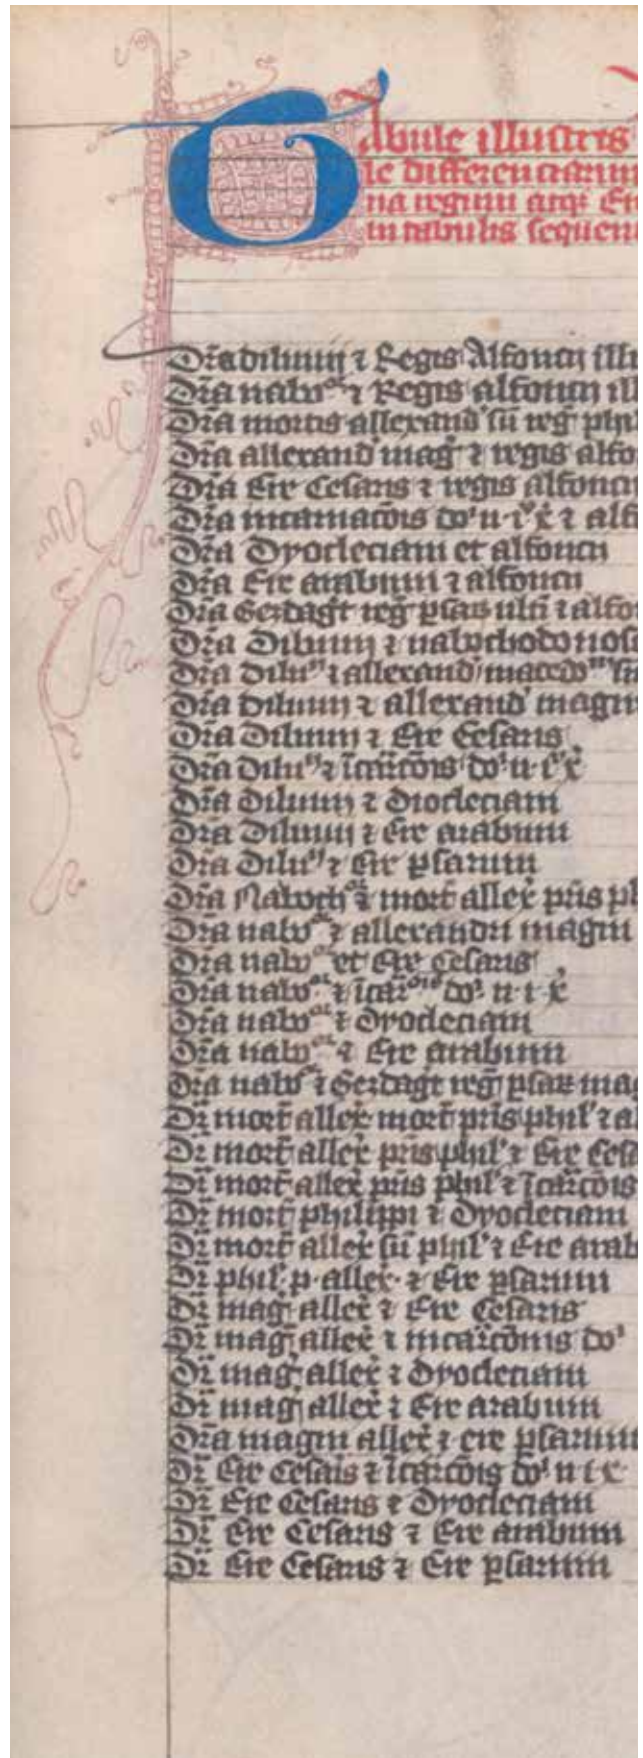 Tabule illustris
le differenciarum
na regum atqꝫ Er
in tabulis sequen
Dr̄a diluuij ⁊ Regis Alfoncij illu
Dr̄a nabuᵒʳ ⁊ Regis alfoncij ill
Dr̄a mortis allexand' sū reḡ phil
Dr̄a allexand' maḡ ⁊ regis alfo
Dr̄a Ere Cesaris ⁊ regis alfoncij
Dr̄a incarnac̄ois do' n ı' x̄ ⁊ alfo
Dr̄a Dyocleciani et alfoncij
Dr̄a Ere arabum ⁊ alfoncij
Dr̄a Gezdagt̄ reḡ ꝑsaꝝ ulti ⁊ alfo
Dr̄a Diluuij ⁊ nabuchodonoso
Dr̄a Diluⁱʲ ⁊ allexand' maced
Dr̄a diluuij ⁊ allexand' magni
Dr̄a Diluuij ⁊ Ere Cesaris
Dr̄a Diluⁱʲ ⁊ īcar̄cōis do' n ı' x̄
Dr̄a Diluuij ⁊ Diocleciani
Dr̄a Diluuij ⁊ Ere arabum
Dr̄a Diluⁱʲ ⁊ Ere ꝑsarum
Dr̄a Naboch ⁊ mort̄ allex̄ pr̄is ph
Dr̄a nabuᵒʳ ⁊ allexandri magni
Dr̄a nabuᵒʳ et Ere Cesaris
Dr̄a nabuᵒʳ ⁊ īcar̄ᵒⁱˢ do' n ı x̄
Dr̄a nabuᵒʳ ⁊ Dyocleciani
Dr̄a nabuᵒʳ ⁊ Ere arabum
Dr̄a nabuᵒʳ ⁊ Gezdagt̄ reḡ ꝑsaꝝ mag
Dr̄ mort̄ allex̄ mort̄ pr̄is phil' ⁊ al
Dr̄ mort̄ allex̄ pr̄is phil' ⁊ Ere Cesa
Dr̄ mort̄ allex̄ pr̄is phil' ⁊ Īcar̄cōis
Dr̄ mort̄ philippi ⁊ Dyocleciani
Dr̄ mort̄ allex̄ sū phil' ⁊ Ere arab
Dr̄ phil' p allex̄ ⁊ Ere ꝑsarum
Dr̄ maḡ allex̄ ⁊ Ere Cesaris
Dr̄ maḡ allex̄ ⁊ incar̄cōnis do'
Dr̄ maḡ allex̄ ⁊ Dyocleciani
Dr̄ maḡ allex̄ ⁊ Ere arabum
Dr̄a magni allex̄ ⁊ ere ꝑsarum
Dr̄ Ere Cesais ⁊ īcar̄cōis do' n ı x̄
Dr̄ Ere Cesaris ⁊ Dyocleciani
Dr̄ Ere Cesaris ⁊ Ere arabum
Dr̄ Ere Cesaris ⁊ Ere ꝑsarum